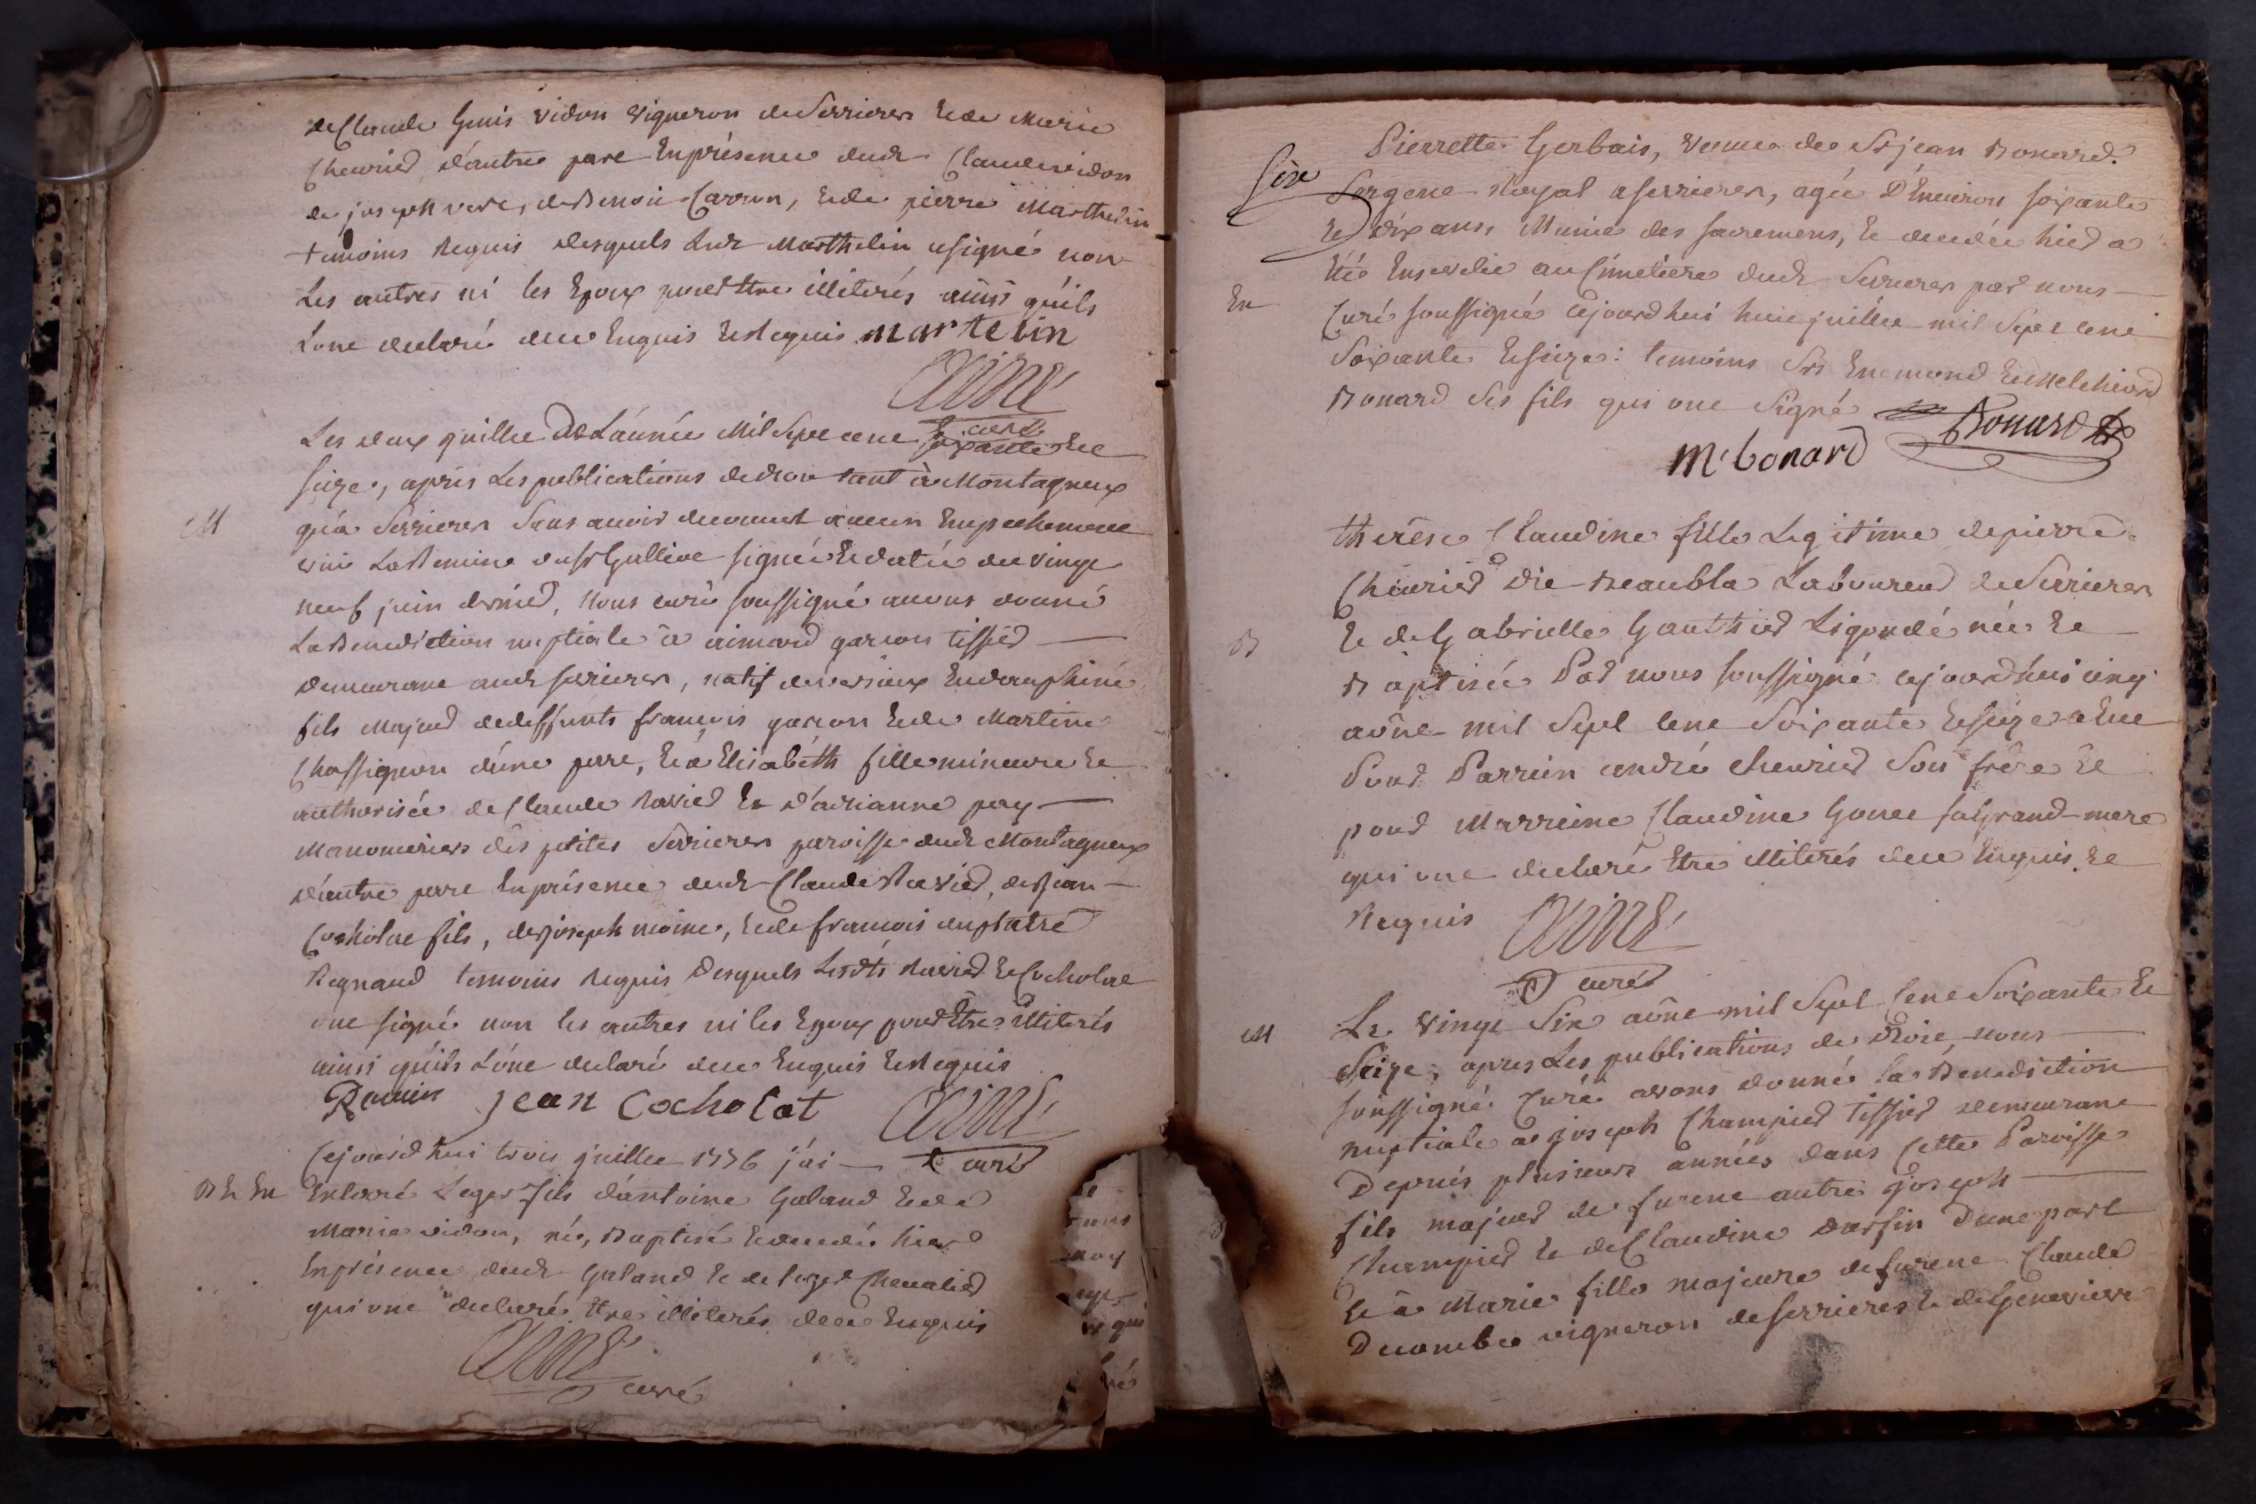 de Claude Gouis vidon vigneron de Serrieres et de Marie
Cheuried d'autre part en présence dudt Claude vidon
de joseph vere, de Benoit Carron, et de pierre Marthelin
temoins requis desquels ledt Marthelin a signé non
Les autres ni les Epoux pour être illiterés ainsi qu'ils
L'ont declaré de ce Enquis et Requis martelin
Aimé
curé
Les deux juillet De L'année Mil Sept cent soixante et
seize, apres Les publications de droit tant à Montagneux
qu'a Serrieres Sans avoir decouvert aucun Empechement
M
vuë La Remise du Sr Gulliot signée et datée du vingt
neuf juin dernier, Nous curé soussigné avons donné
La Benediction nuptiale à aimard garcon tissied
demeurant audt serrieres, natif de en dauphiné
fils Majeur de deffunts francois garcon et de Martine
Chassignon d'une part, et à Elisabeth fille mineure et
authorisée de Claude Ravied et d'arianne pay
Manouvriers des petites Serrieres paroisse dudt Montagneux
d'autre part En présence dudt Claude Ravied, de Jean
Cocholat fils, de joseph moine, et de francois duplatre
Regnaud temoins Requis Desquels Lesdts Ravied et Cocholat
ont signé non les autres ni les Epoux pour Etre illiterés
ainsi qu'ils L'ont declaré de ce Enquis et Requis
Ravier jean cocholat Aimé
curé
Cejourd'hui trois juillet 1776 j'ai
B et En Enterré Leger fils d'antoine Galand et de
Marie vidon, né, Baptisé et decedé hier
En présence dudt Galand et de leger Chevalied
qui ont declaré Etre illiterés de ce Enquis
Aimé
curé
Pierrette Gerbais, veuve de Sr jean Bonard
Sergent Royal a serrieres, agée D'Environ soixante
et dix ans, Munie des sacremens, et decedée hier a
été Ensevelie au Cimetiere dudt Serrieres par nous
En
Curé soussigné cejourd'hui huit juillet mil Sept cent
Soixante et seize: temoins Srs Enemond et Melchiord
Bonard ses fils qui ont Signé Bonard
M. bonard
thérèse Claudine fille Legitime de pierre
Cheuried dit Beaublat Laboureur de Serrieres
B
et de Gabrielle Gauthied née et
Baptisée Par nous soussigné cejourd'hui cinq
aôut mil Sept Cent Soixante et seize a Eue
Pour Parrein andré cheuried Son frère et
pour Marreine Claudine Gouet sa Grand-mere
qui ont declaré Etre illiterés de ce Enquis et
Requis Aimé
curé
M
Le vingt Six aôut mil Sept Cent Soixante et
Seize, apres Les publications de Droit, nous
soussigné Curé avons donné la Benediction
nuptiale a joseph Champied Tissied demeurant
Depuis plusieurs années dans Cette Paroisse
fils majeur de furent autre joseph
Champied et de Claudine darfin D'une part
et à Marie fille majeure de furent Claude
Decombe vigneron de serrieres et de Genevieve